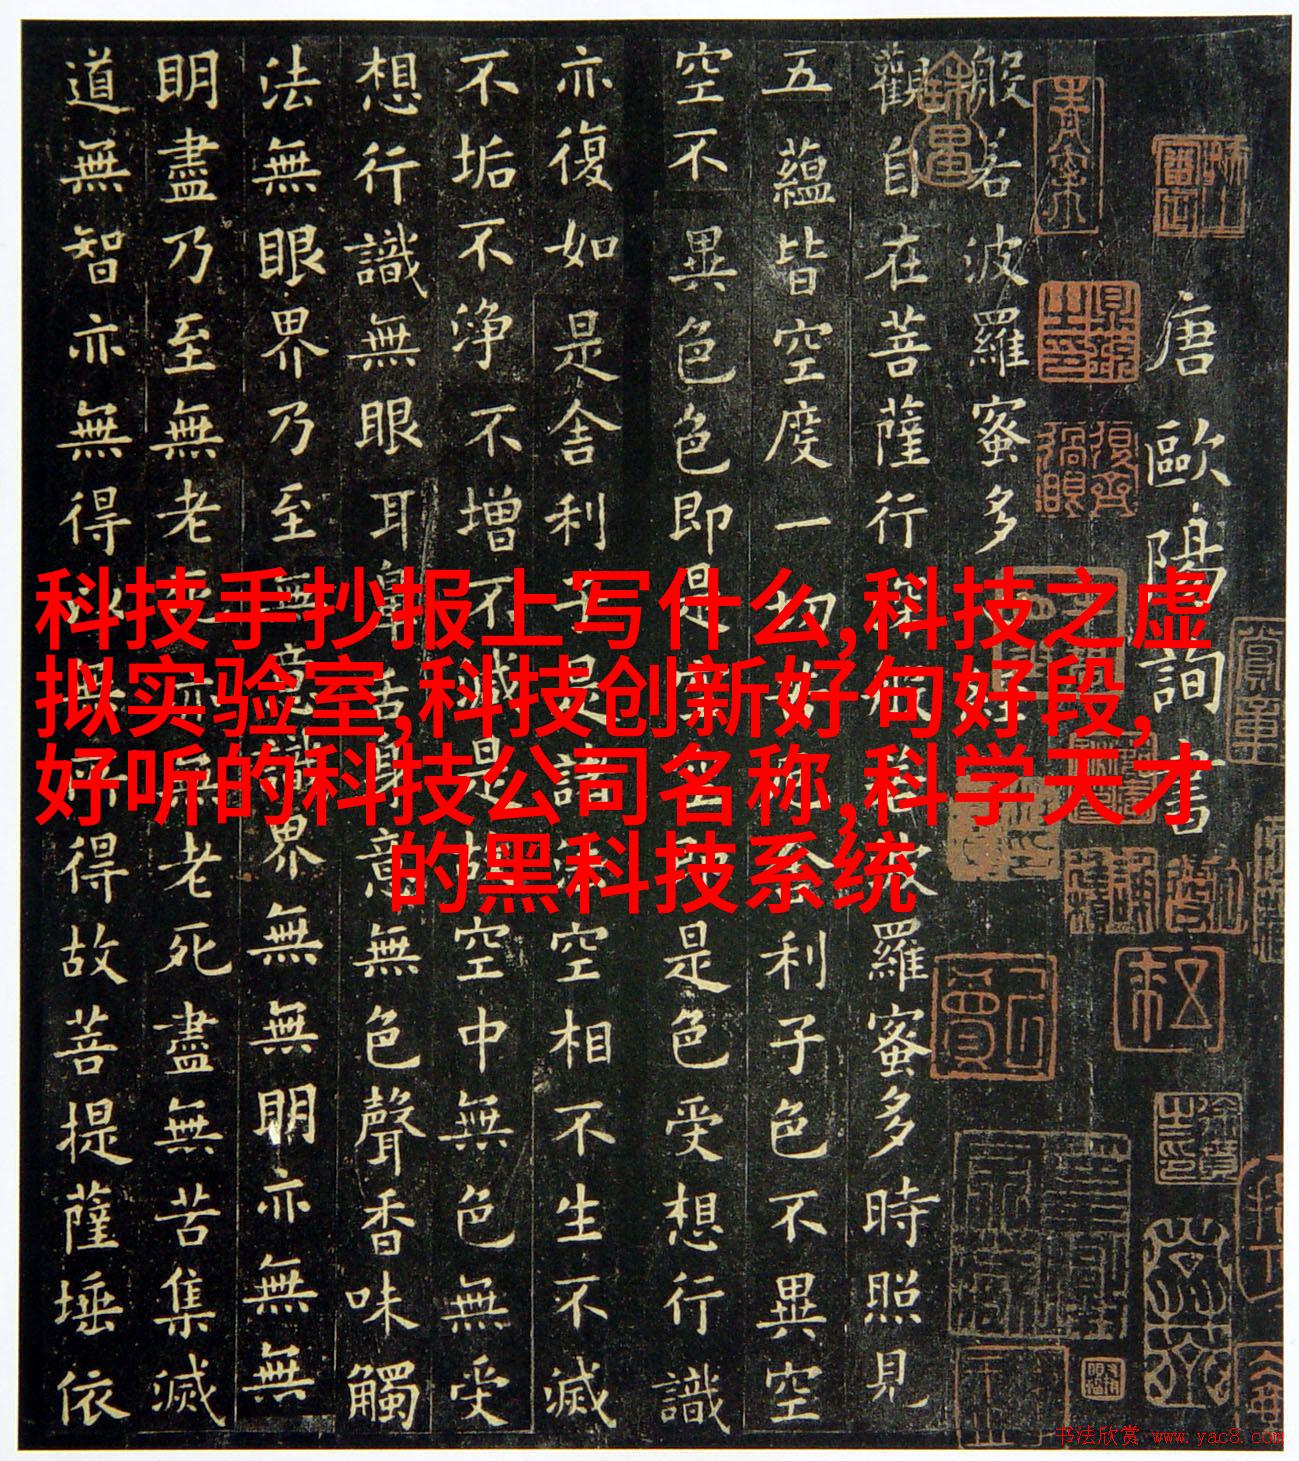 唐歐陽詢書
般若波羅蜜多經
觀自在菩薩行深般若波羅蜜多時照見
五蘊皆空度一切苦厄舍利子色不異空
空不異色色即是空空即是色受想行識
亦復如是舍利子是諸法空相不生不滅
不垢不浄不增不減是故空中無色無受
想行識無眼耳鼻舌身意無色聲香味觸
法無眼界乃至無意識界無無明亦無無
明盡乃至無老死亦無老死盡無苦集滅
道無智亦無得以無所得故菩提薩埵依
科技手抄报上写什么,科技之虚
拟实验室,科技创新好句好段,
好听的科技公司名称,科学天才
的黑科技系统
书法欣赏 www.yac8.com